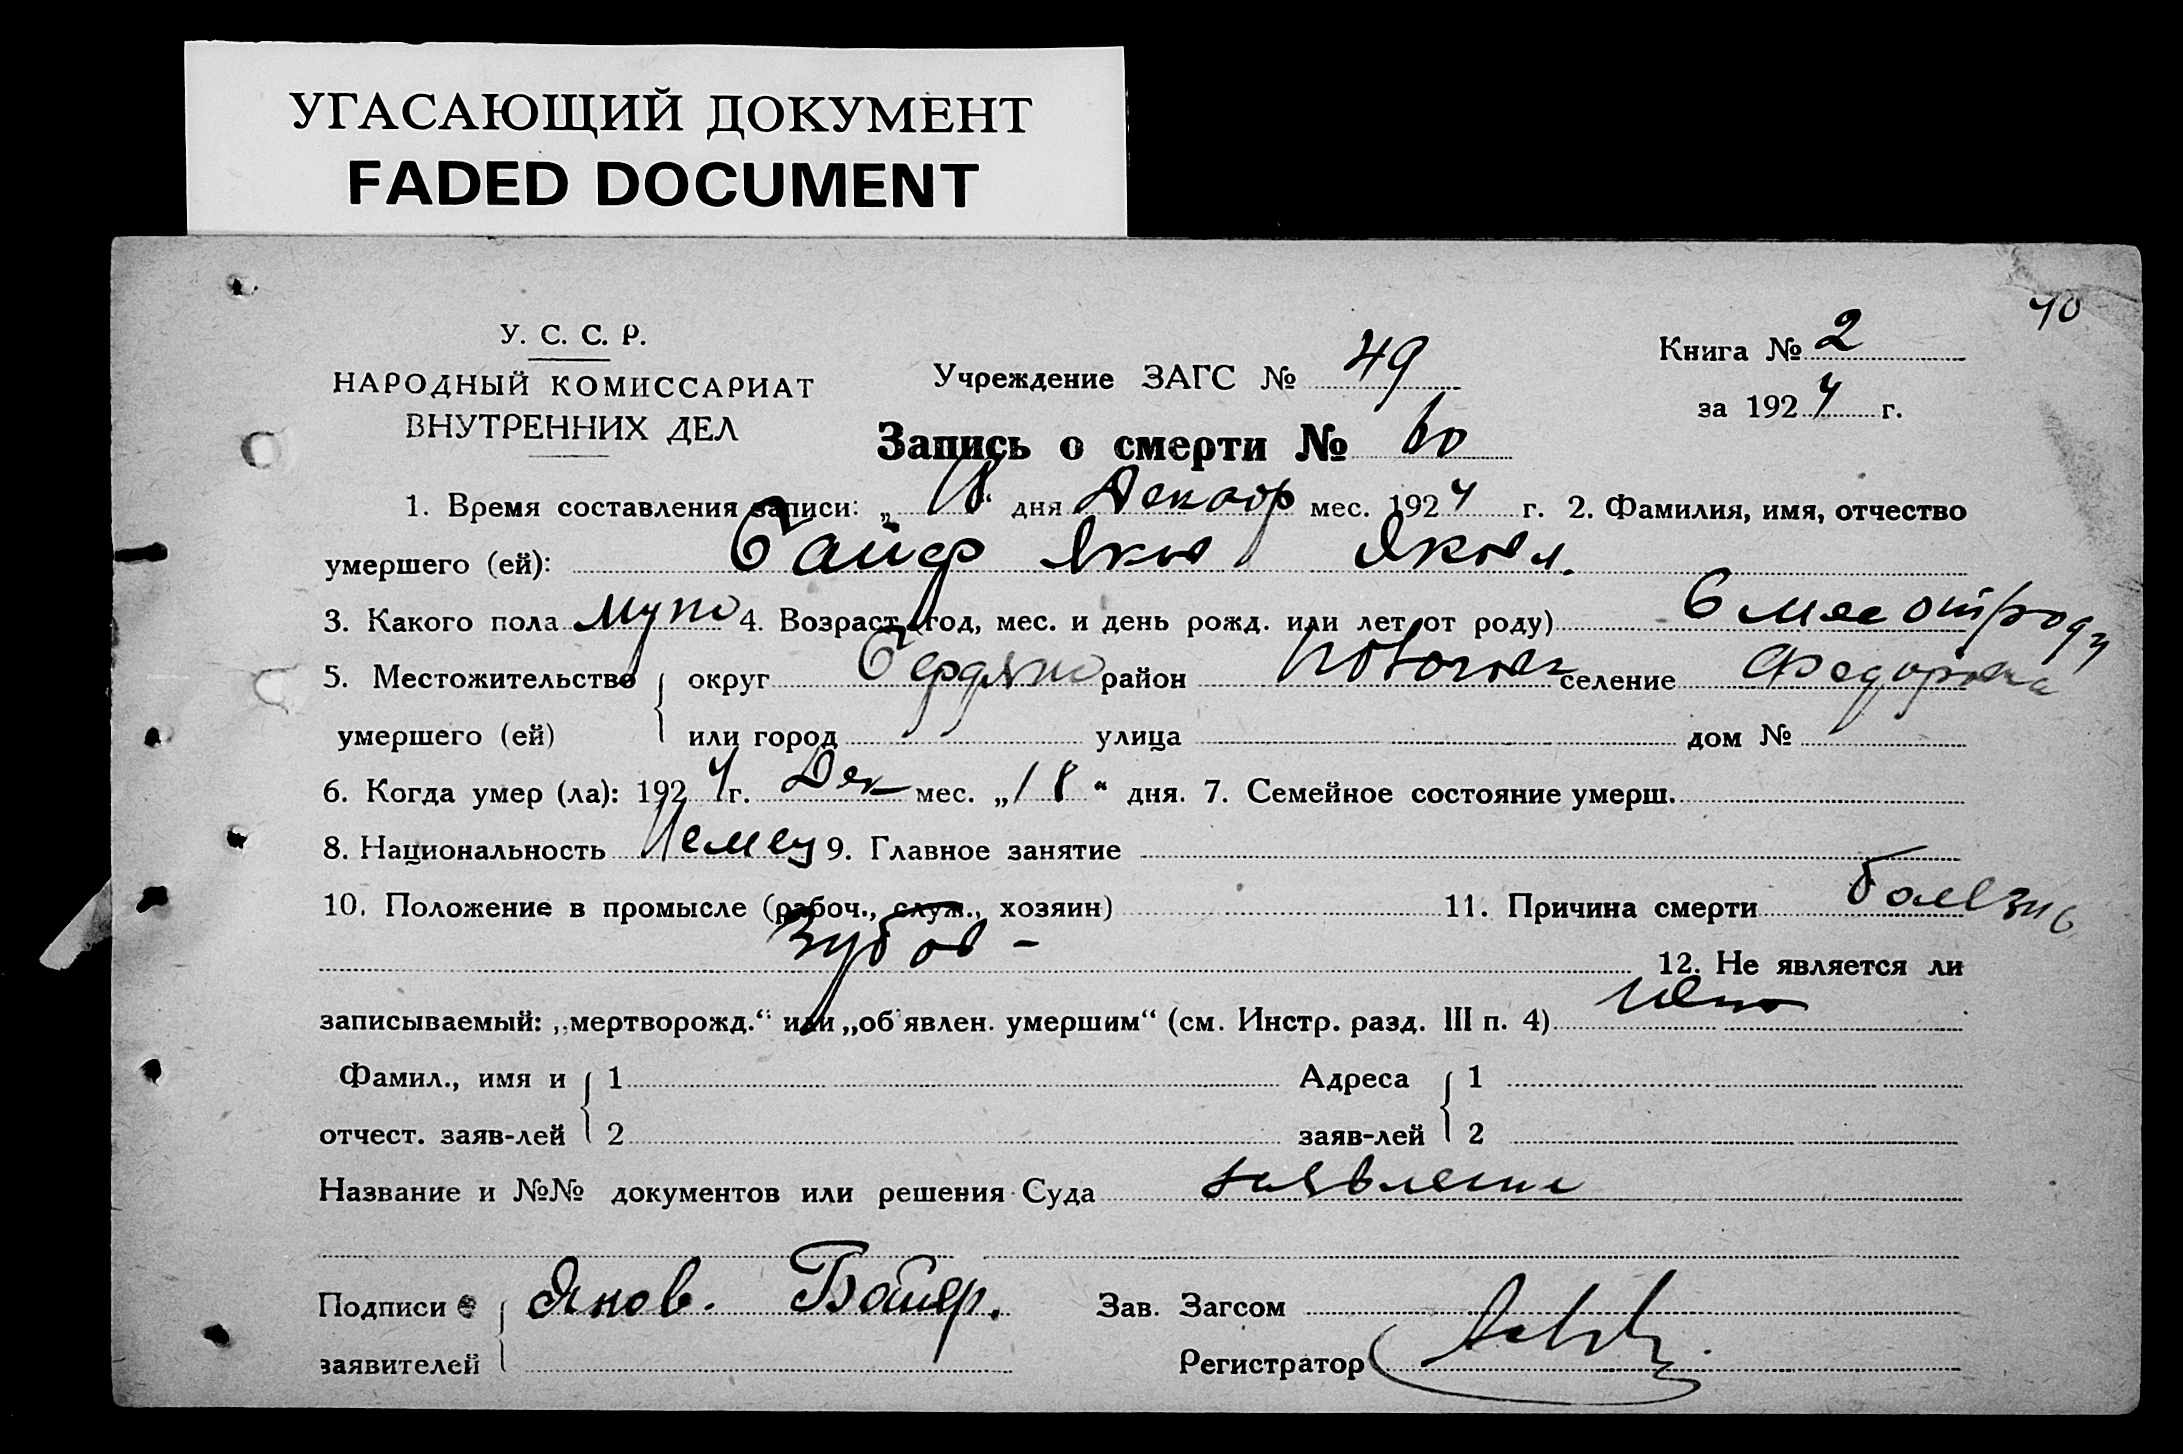 УГАСАЮЩИЙ ДОКУМЕНТ
FADED DOCUMENT
40
У. С. С. Р.
НАРОДНЫЙ КОМИССАРИАТ
ВНУТРЕННИХ ДЕЛ
Учреждение ЗАГС № 49
Книга № 2
за 1924 г.
Запись о смерти № 60
1. Время составления записи: „18“ дня Декабр мес. 1924 г. 2. Фамилия, имя, отчество
умершего (ей): Байер Яков Яковл.
3. Какого пола муж 4. Возраст (год, мес. и день рожд. или лет от роду) 6 мес от роду
5. Местожительство округ Бердянс район селение Федоровка
умершего (ей) или город улица дом №
6. Когда умер (ла): 1924 г. Дек мес. „18“ дня. 7. Семейное состояние умерш.
8. Национальность Немец 9. Главное занятие
10. Положение в промысле (рабоч., служ., хозяин) 11. Причина смерти болезнь
Зубов - 12. Не является ли
записываемый: „мертворожд.“ или „об'явлен. умершим“ (см. Инстр. разд. III п. 4)
Фамил., имя и 1 Адреса 1
отчест. заяв-лей 2 заяв-лей 2
Название и №№ документов или решения Суда заявление
Подписи Яков. Байер. Зав. Загсом
заявителей Регистратор